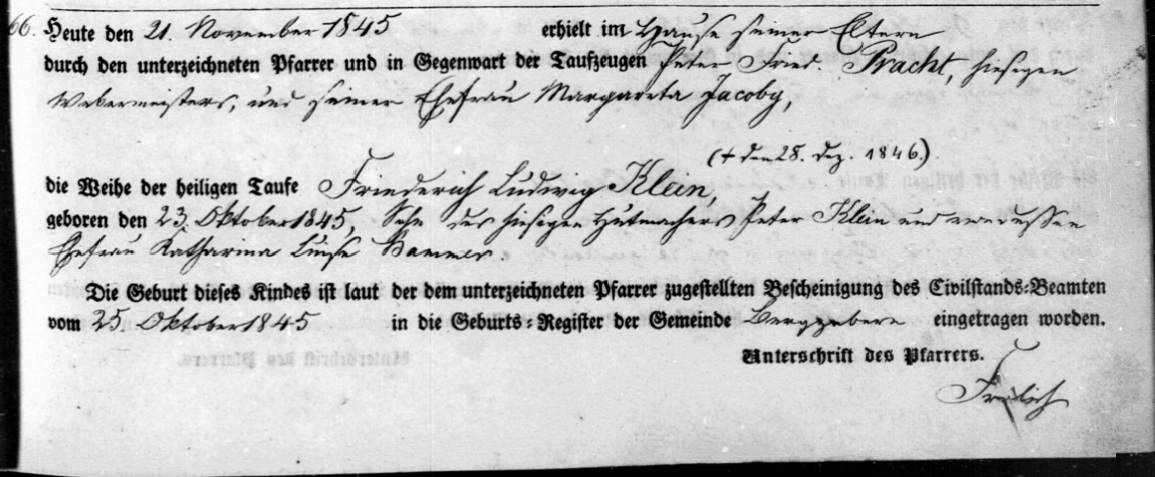 66. Heute den 21. November 1845 erhielt im Hause seiner Eltern
durch den unterzeichneten Pfarrer und in Gegenwart der Taufzeugen Peter Fried. Pracht, hiesigen
Webermeisters, und seiner Ehefrau Margareta Jacoby,
(† den 28. Dez. 1846.)
die Weihe der heiligen Taufe Friederich Ludwig Klein,
geboren den 23. Oktober 1845, Sohn des hiesigen Hutmachers Peter Klein und dessen
Ehefrau Katharina Luise
Die Geburt dieses Kindes ist laut der dem unterzeichneten Pfarrer zugestellten Bescheinigung des Civilstands-Beamten
vom 25. Oktober 1845 in die Geburts-Register der Gemeinde Bergzabern eingetragen worden.
Unterschrift des Pfarrers.